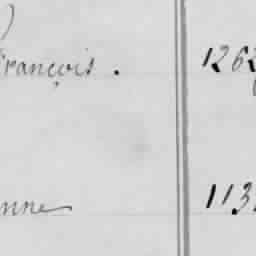 françois. 126
nne 113